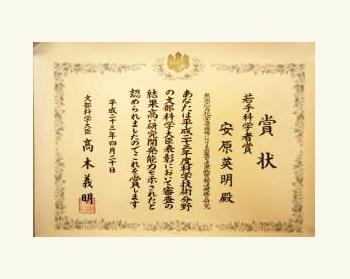 賞状
若手科学者賞
安原英明殿
あなたは平成二十三年度科学技術分野
の文部科学大臣表彰において審査の
結果高い研究開発能力を示されたと
認められましたのでこれを賞します
平成二十三年四月二十日
文部科学大臣
高木義明